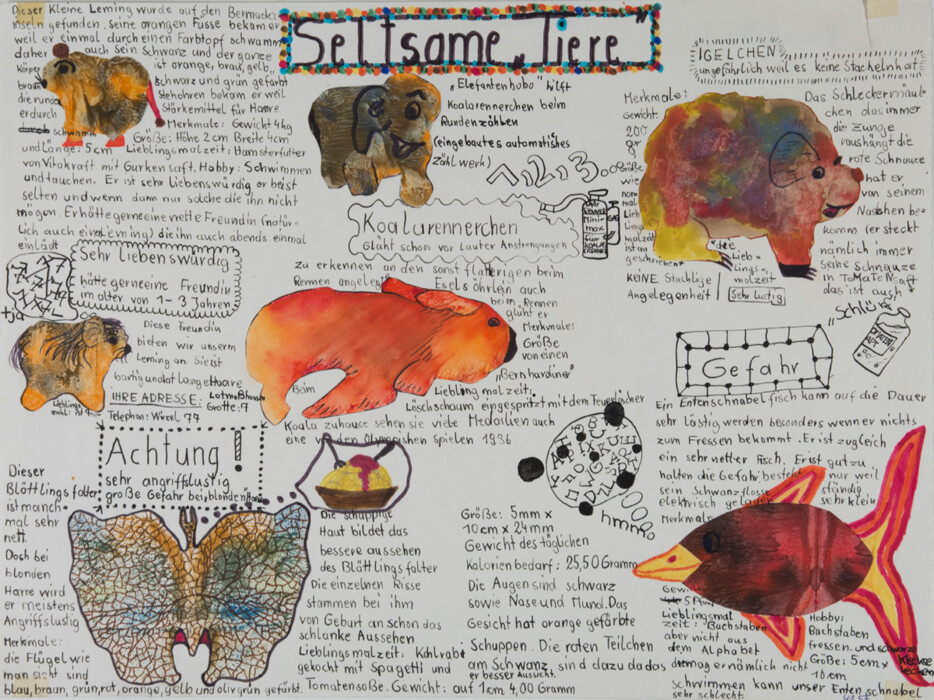 Seltsame „Tiere"
Dieser Kleine Leming wurde auf den Bermuda
inseln gefunden. seine orangen Füsse bekam er
weil er einmal durch einen Farbtopf schwamm
daher auch sein Schwanz und der ganze
Körper ist orange, braun, gelb
schwarz und grün gefärbt
die runden Stehohren bekam er weil
er durch Stärkemittel für Haare
schwamm Merkmale: Gewicht 4kg
Größe: Höhe 2cm Breite 4cm
und Länge: 5cm Lieblingsmalzeit: Hamsterfutter
von Vitakraft mit Gurkensaft. Hobby: Schwimmen
und tauchen. Er ist sehr Liebenswürdig er beist
selten und wenn dann nur solche die ihn nicht
mögen. Er hätte gerne eine nette Freundin (natür-
lich auch eine Leming) die ihn auch abends einmal
einlädt
Sehr Liebenswürdig
hätte gerne eine Freundin
im alter von 1-3 Jahren
tja
Diese Freundin
bieten wir unserem
Leming an. Sie ist
bartig und hat lange Haare
IHRE ADRESSE:
Grotte: 9
Telephon: Würzl 77
„Elefantenhobo" hilft
Koalarennerchen beim
Runden zählen
(eingebautes automatisches
Zählwerk)
1,2,3000
Koalarennerchen
Glüht schon vor Lauter Anstrengungen
zu erkennen an den sonst flatterigen beim
Rennen angelegten Esels öhrlein auch
beim Rennen
glüht er
Merkmale:
Größe
von einen
„Bernhardiner"
Lieblingmalzeit:
Löschschaum eingespritzt mit dem Feuerlöscher
Beim
Koala zuhause sehen sie viele Medaillen auch
eine von den Olympischen Spielen 1936
IGELCHEN
ungefährlich weil es keine Stacheln hat
Merkmale:
Gewicht:
200
g
Größe
wie
normal
Lieb
Lings
malzeit
ist am
geschrieben
KEINE Stachlige
Angelegenheit
*die
Lieb-
Lings-
malzeit
Sehr Lustig
Das Schleckermäul-
chen das immer
die Zunge
raushängt die
rote Schnauze
hat er
von seinem
Naschen be-
komm (er steckt
nämlich immer
seine Schnauze
in ToMaTeNsaft
das ist auch
„Schlürf"
Gefahr
Ein Entenschnabelfisch kann auf die Dauer
sehr lästig werden besonders wenn er nichts
zum Fressen bekommt. Er ist zugleich
ein sehr netter Fisch. Er ist gut zu
halten die Gefahr, besteht nur weil
sein Schwanzflosse ständig
elektrisch geladen sehr klein
Merkmale
Gewicht
5 Pfund
Lieblingsmal
zeit: Buchstaben
aber nicht aus
dem Alphabet
die mag er nämlich nicht
Hobby:
Buchstaben
fressen. und schwarze
Kleckse
lecken
Größe: 5cm x
10cm
schwimmen kann unser Entenschnabel
sehr schlecht.
Achtung!
sehr angriffslustig
große Gefahr bei blonden Haaren
Dieser
Blättlingsfalter
ist manch-
mal sehr
nett.
Doch bei
blonden
Harre wird
er meistens
Angriffslustig
Merkmale:
die Flügel wie
man sieht sind
blau, braun, grün, rot, orange, gelb und olivgrün gefärbt.
Die schuppige
Haut bildet das
bessere aussehen
des Blättlingsfalter
Die einzelnen Risse
stammen bei ihm
von Geburt an schon das
schlanke Aussehen
Lieblingsmalzeit: Kohlrabi
gekocht mit Spagetti und
Tomatensoße. Gewicht: auf 1cm 4,00 Gramm
hmmm
Größe: 5mm x
10cm x 24mm
Gewicht des täglichen
Kalorienbedarf: 25,50 Gramm
Die Augen sind schwarz
sowie Nase und Mund. Das
Gesicht hat orange gefärbte
Schuppen. Die roten Teilchen
am Schwanz, sind dazu da das
er besser Aussieht.